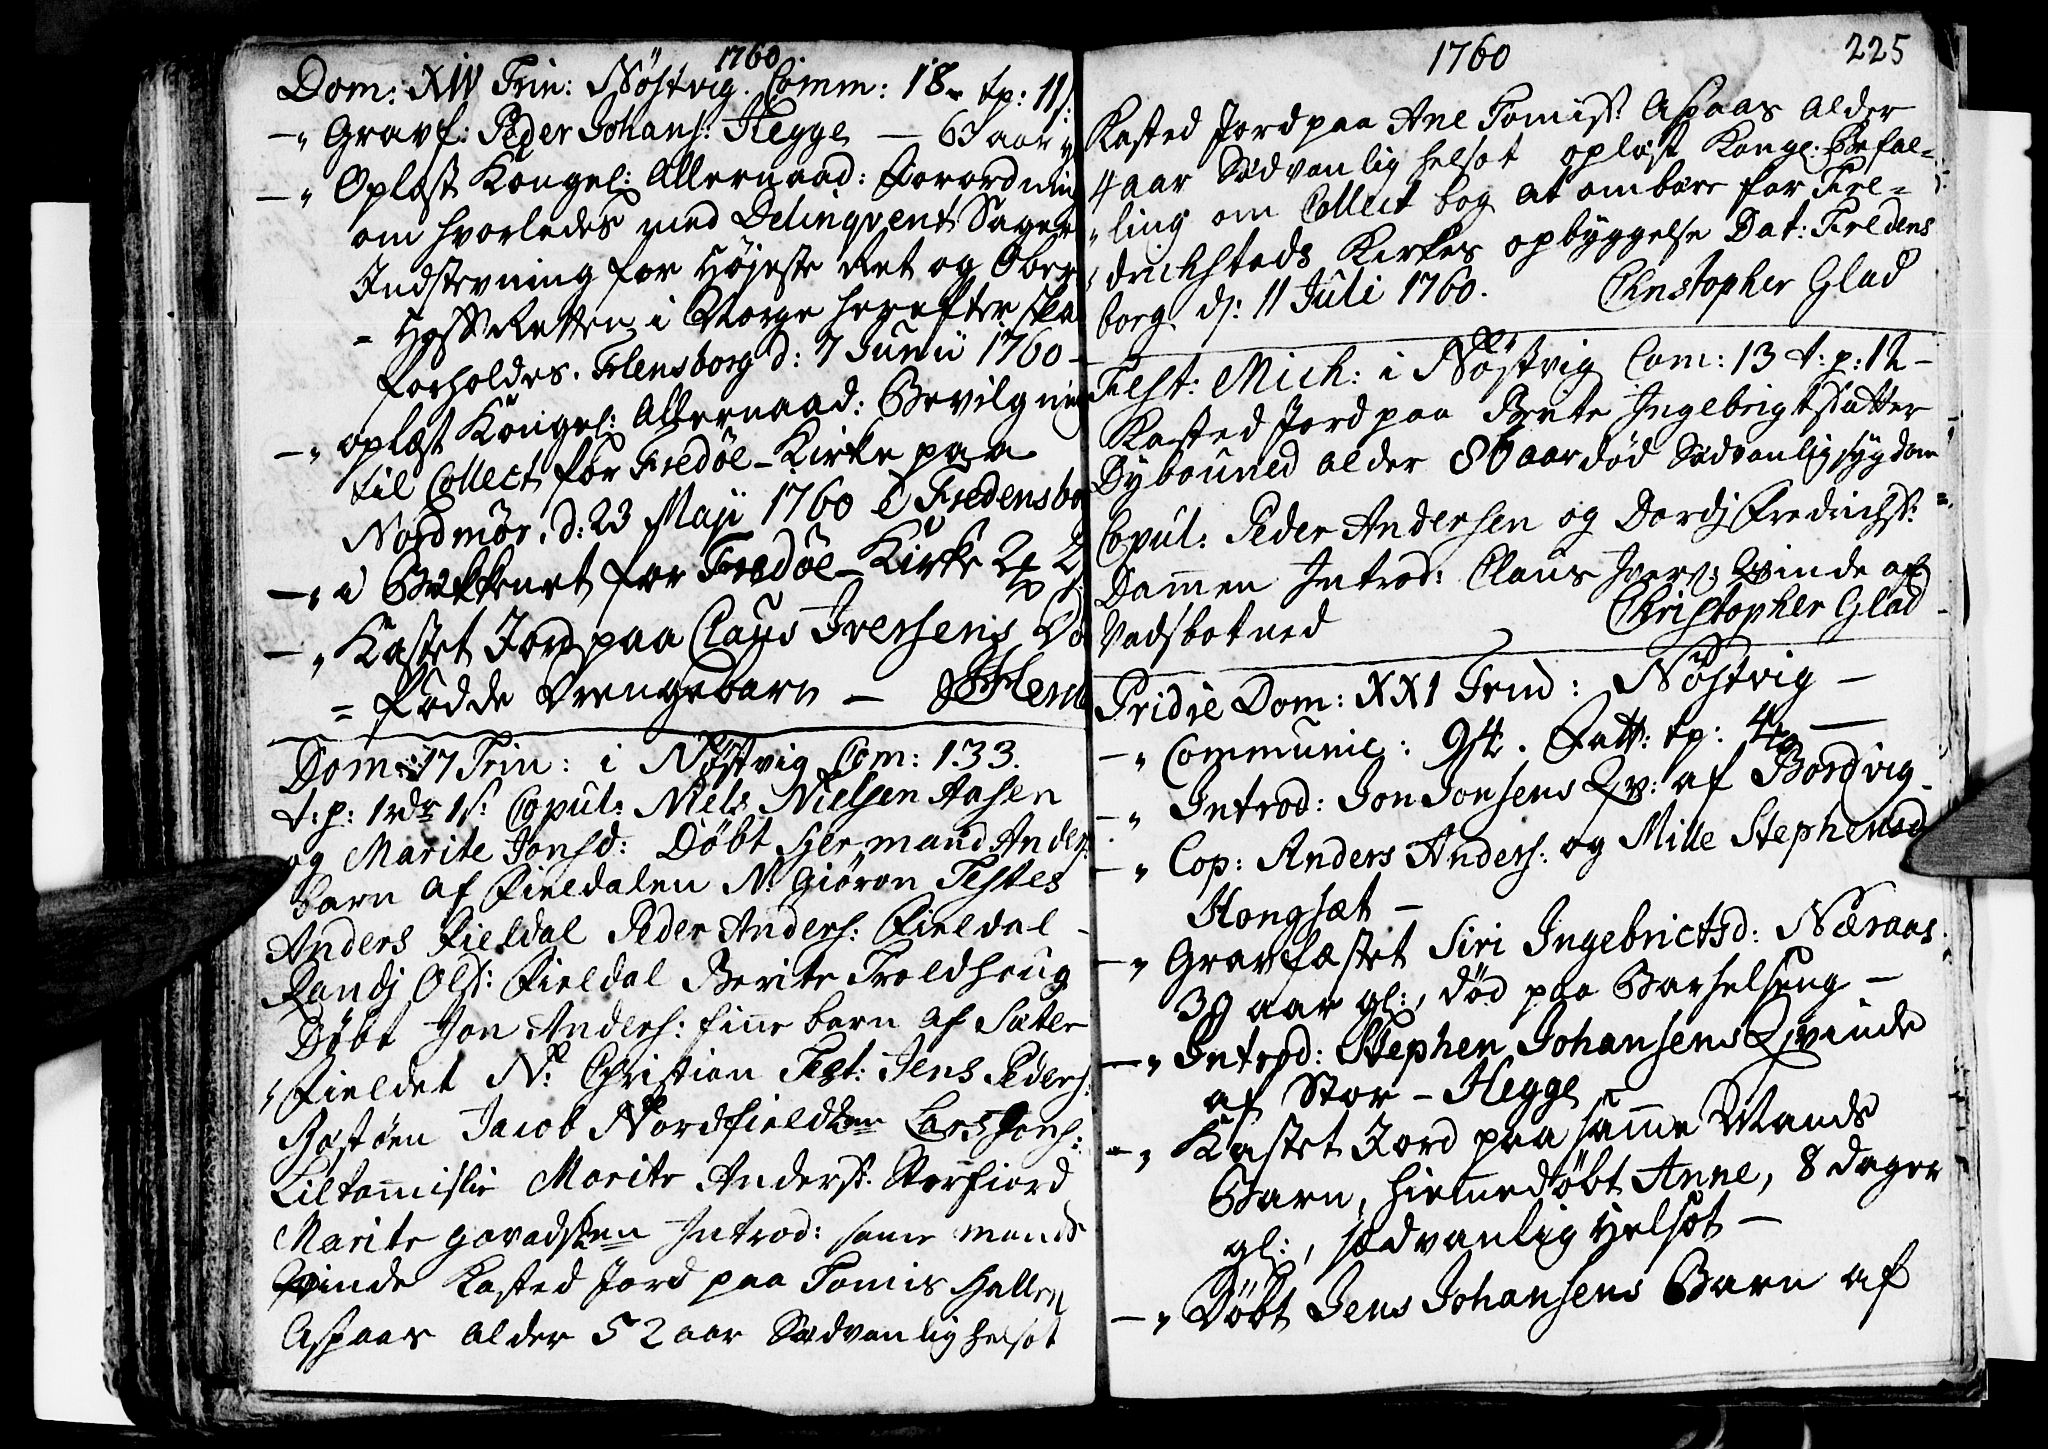 1760
Dom: XIV Trin: Nøstvig. Comm: 18 tp: 11 s:
—„ Gravf: Peder Johans: Hegge — 63 aar
—„ Oplæst Kongel: Allernaad: Forordning
om hvorledes med Delinqvent Sager
Indstevning for Højeste Ret og Ober
= HoffRetten i Norge herefter ska
forholdes. Flensborg d: 7 Junii 1760 —
—„ oplæst Kongel: Allernaad: Bevilgning
til Collect for Fredøe-Kirke paa
Nordmør. d: 23 Maji 1760 Fredensbo
—„ i Bekkenet for Fredøe-Kirke 2
—„ Kastet Jord paa Claus Iversens Dø
= fødde Drengebarn —
Dom: 17 Trin: i Nøstvig Com: 133.
t: p: 1 rdr 1 s: Copul: Niels Nielsen Aasen
og Marite Jonsd: Døbt Hermand Anders:
barn af Fieldalen N: Giøron Testes
Anders Fieldal Peder Anders: Fieldal —
Randj Olsd: Fieldal Berite Troldhoug
Døbt Jon Anders: finne barn af Sæter
„Fieldet N: Christian Test: Jens Peders:
Røstøen Jacob Nordfieldken Lars Jons:
Liltommislie Marite Andersd: Storfiord
Marite gavadsken Introd: samme mands
Qvinde Kasted Jord paa Tomis Hallen
Aspaas alder 52 aar Sædvanlig helsot
1760 225
Kasted Jord paa Ane Tomisd: Aspaas alder
4 aar Sædvanlig helsot oplæst Kongl: Befal=
„ling om Collect bog at ombære for Fre=
„drichstads Kirkes opbyggelse Dat: Fredens
borg d: 11 Juli 1760. Christopher Glad
Fest: Mich: i Nøstvig Com: 13 t: p: 12 —
Kasted Jord paa Bente Ingebrigtsdatter
Dybouned alder 86 aar død Sædvanlig sygdom
Copul: Peder Andersen og Dordj Fredrichsd:
Dammen Introd: Claus Ivers: Qvinde af
Vadsbotned Christopher Glad
Pridie Dom: XXI Trin: Nøstvig —
—„ Communic: 94. Fatt: tp: 4 —
—„ Introd: Jon Jonsens Qv: af Bordvig —
—„ Cop: Anders Anders: og Mille Stephensd
Hongsæt —
—„ Gravfæstet Siri Ingebrictsd: Næraas
39 aar gl:, død paa Barselseng —
—„ Introd: Stephen Johansens Qvinde
af Stor-Hegge
—„ Kastet Jord paa samme Mands
Barn, hiemmedøbt Anne, 8 dager
gl:, sædvanlig Helsot —
—„ Døbt Jens Johansens Barn af